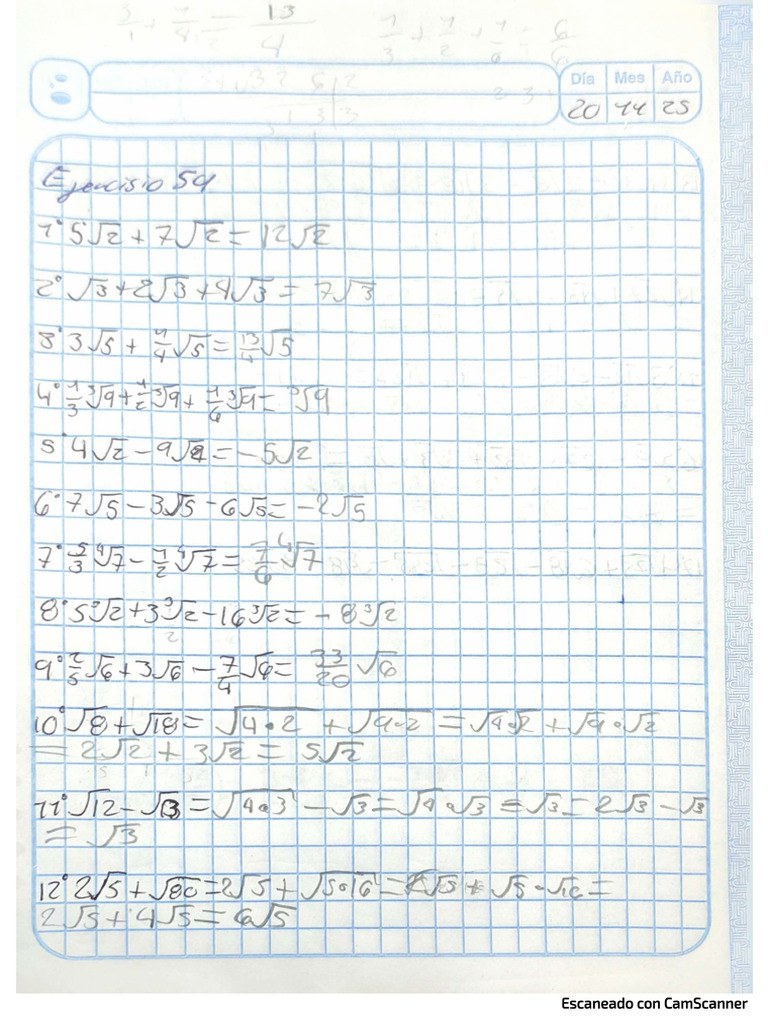 Día Mes Año
20 11 25
Ejercisio 54
1° 5√2 + 7√2 = 12√2
2° √3+2√3+4√3 = 7√3
3° 3√5 + 1/4√5 = 13/4√5
4° 1/3 ³√9 + 1/2 ³√9 + 1/6 ³√9 = ³√9
5° 4√2 - 9√2 = -5√2
6° 7√5 - 3√5 - 6√5 = -2√5
7° 5/3 ⁴√7 - 1/2 ⁴√7 = 7/6 ⁴√7
8° 5³√2 + 3³√2 - 16³√2 = -8³√2
9° 2/5√6 + 3√6 - 7/4√6 = 33/20 √6
10° √8 + √18 = √4·2 + √9·2 = √4·√2 + √9·√2
= 2√2 + 3√2 = 5√2
11° √12 - √3 = √4·3 - √3 = √4·√3 = √3 = 2√3 - √3
= √3
12° 2√5 + √80 = 2√5 + √5·16 = 2√5 + √5·√16 =
2√5 + 4√5 = 6√5
Escaneado con CamScanner